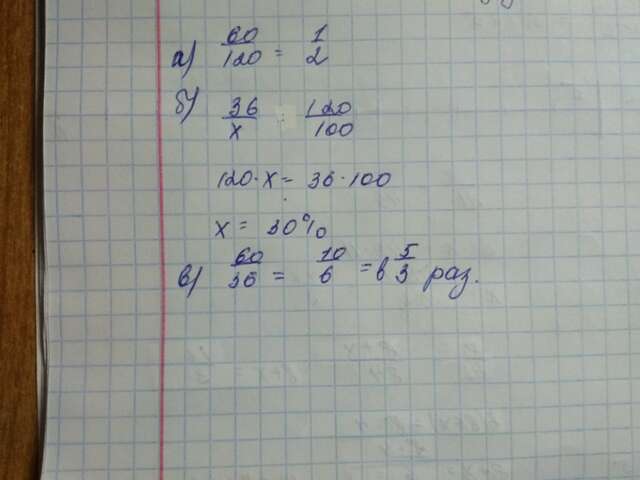 а) 60/120 = 1/2
б) 36/x : 120/100
120·x = 36·100
x = 30%
в) 60/36 = 10/6 = в 5/3 раз.